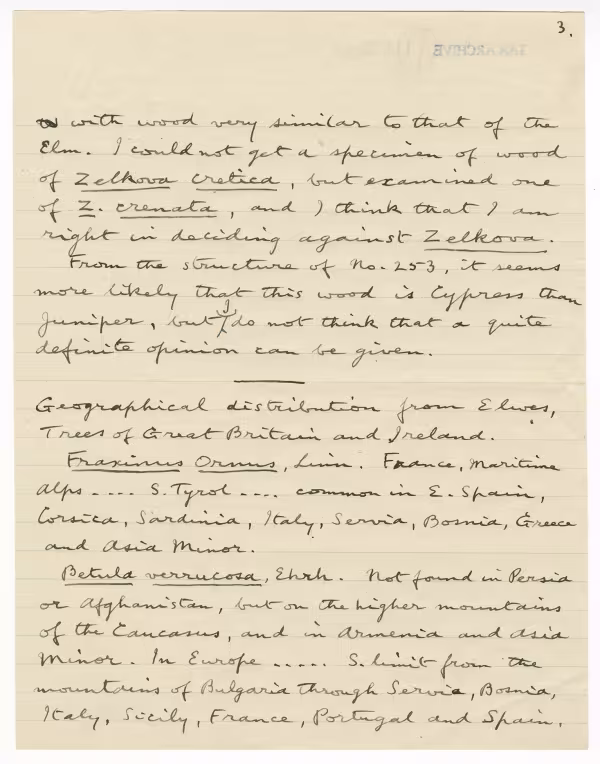 3.
with wood very similar to that of the
Elm. I could not get a specimen of wood
of Zelkova cretica, but examined one
of Z. crenata, and I think that I am
right in deciding against Zelkova.
From the structure of No. 253, it seems
more likely that this wood is Cypress than
Juniper, but I do not think that a quite
definite opinion can be given.
Geographical distribution from Elwes,
Trees of Great Britain and Ireland.
Fraxinus Ornus, Linn. France, Maritime
Alps .... S. Tyrol .... common in E. Spain,
Corsica, Sardinia, Italy, Servia, Bosnia, Greece
and Asia Minor.
Betula verrucosa, Ehrh. Not found in Persia
or Afghanistan, but on the higher mountains
of the Caucasus, and in Armenia and Asia
Minor. In Europe ..... S. limit from the
mountains of Bulgaria through Servia, Bosnia,
Italy, Sicily, France, Portugal and Spain.